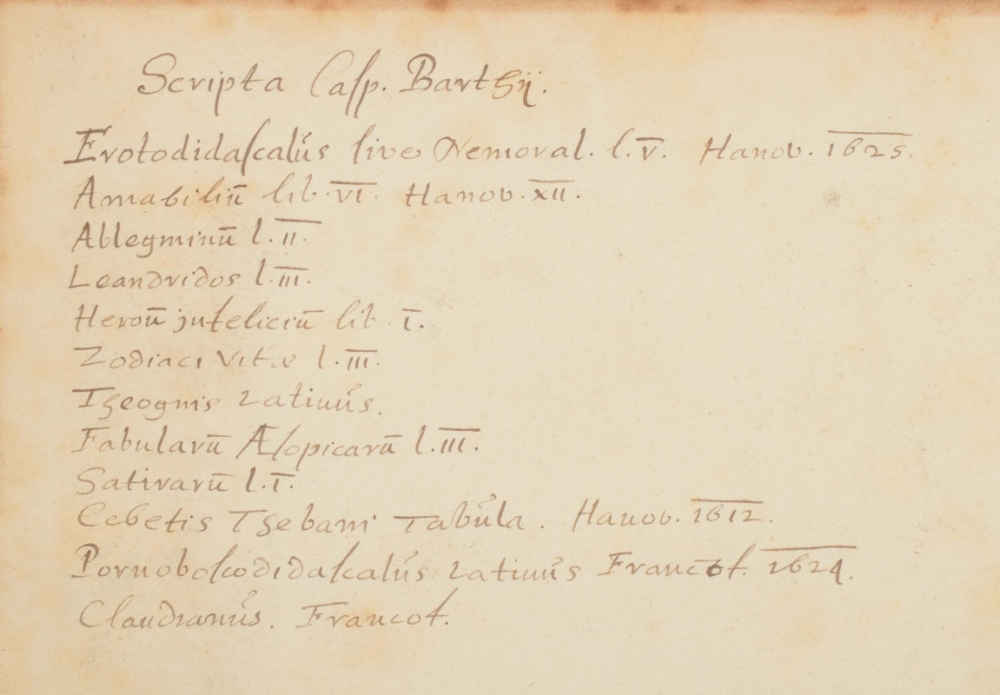 Scripta Casp. Barthij.
Erotodidascalus sive Nemoral. l. V. Hanov. 1625.
Amabiliū lib. VI. Hanov. XII.
Ablegminū l. II.
Leandridos l. III.
Heroū infeliciū lib. I.
Zodiaci Vitæ l. III.
Theognis Latinus.
Fabularū Æsopicarū l. III.
Satirarū l. I.
Cebetis Thebani Tabula. Hanov. 1612.
Pornoboscodidascalus Latinus Francof. 1624.
Claudianus. Francof.